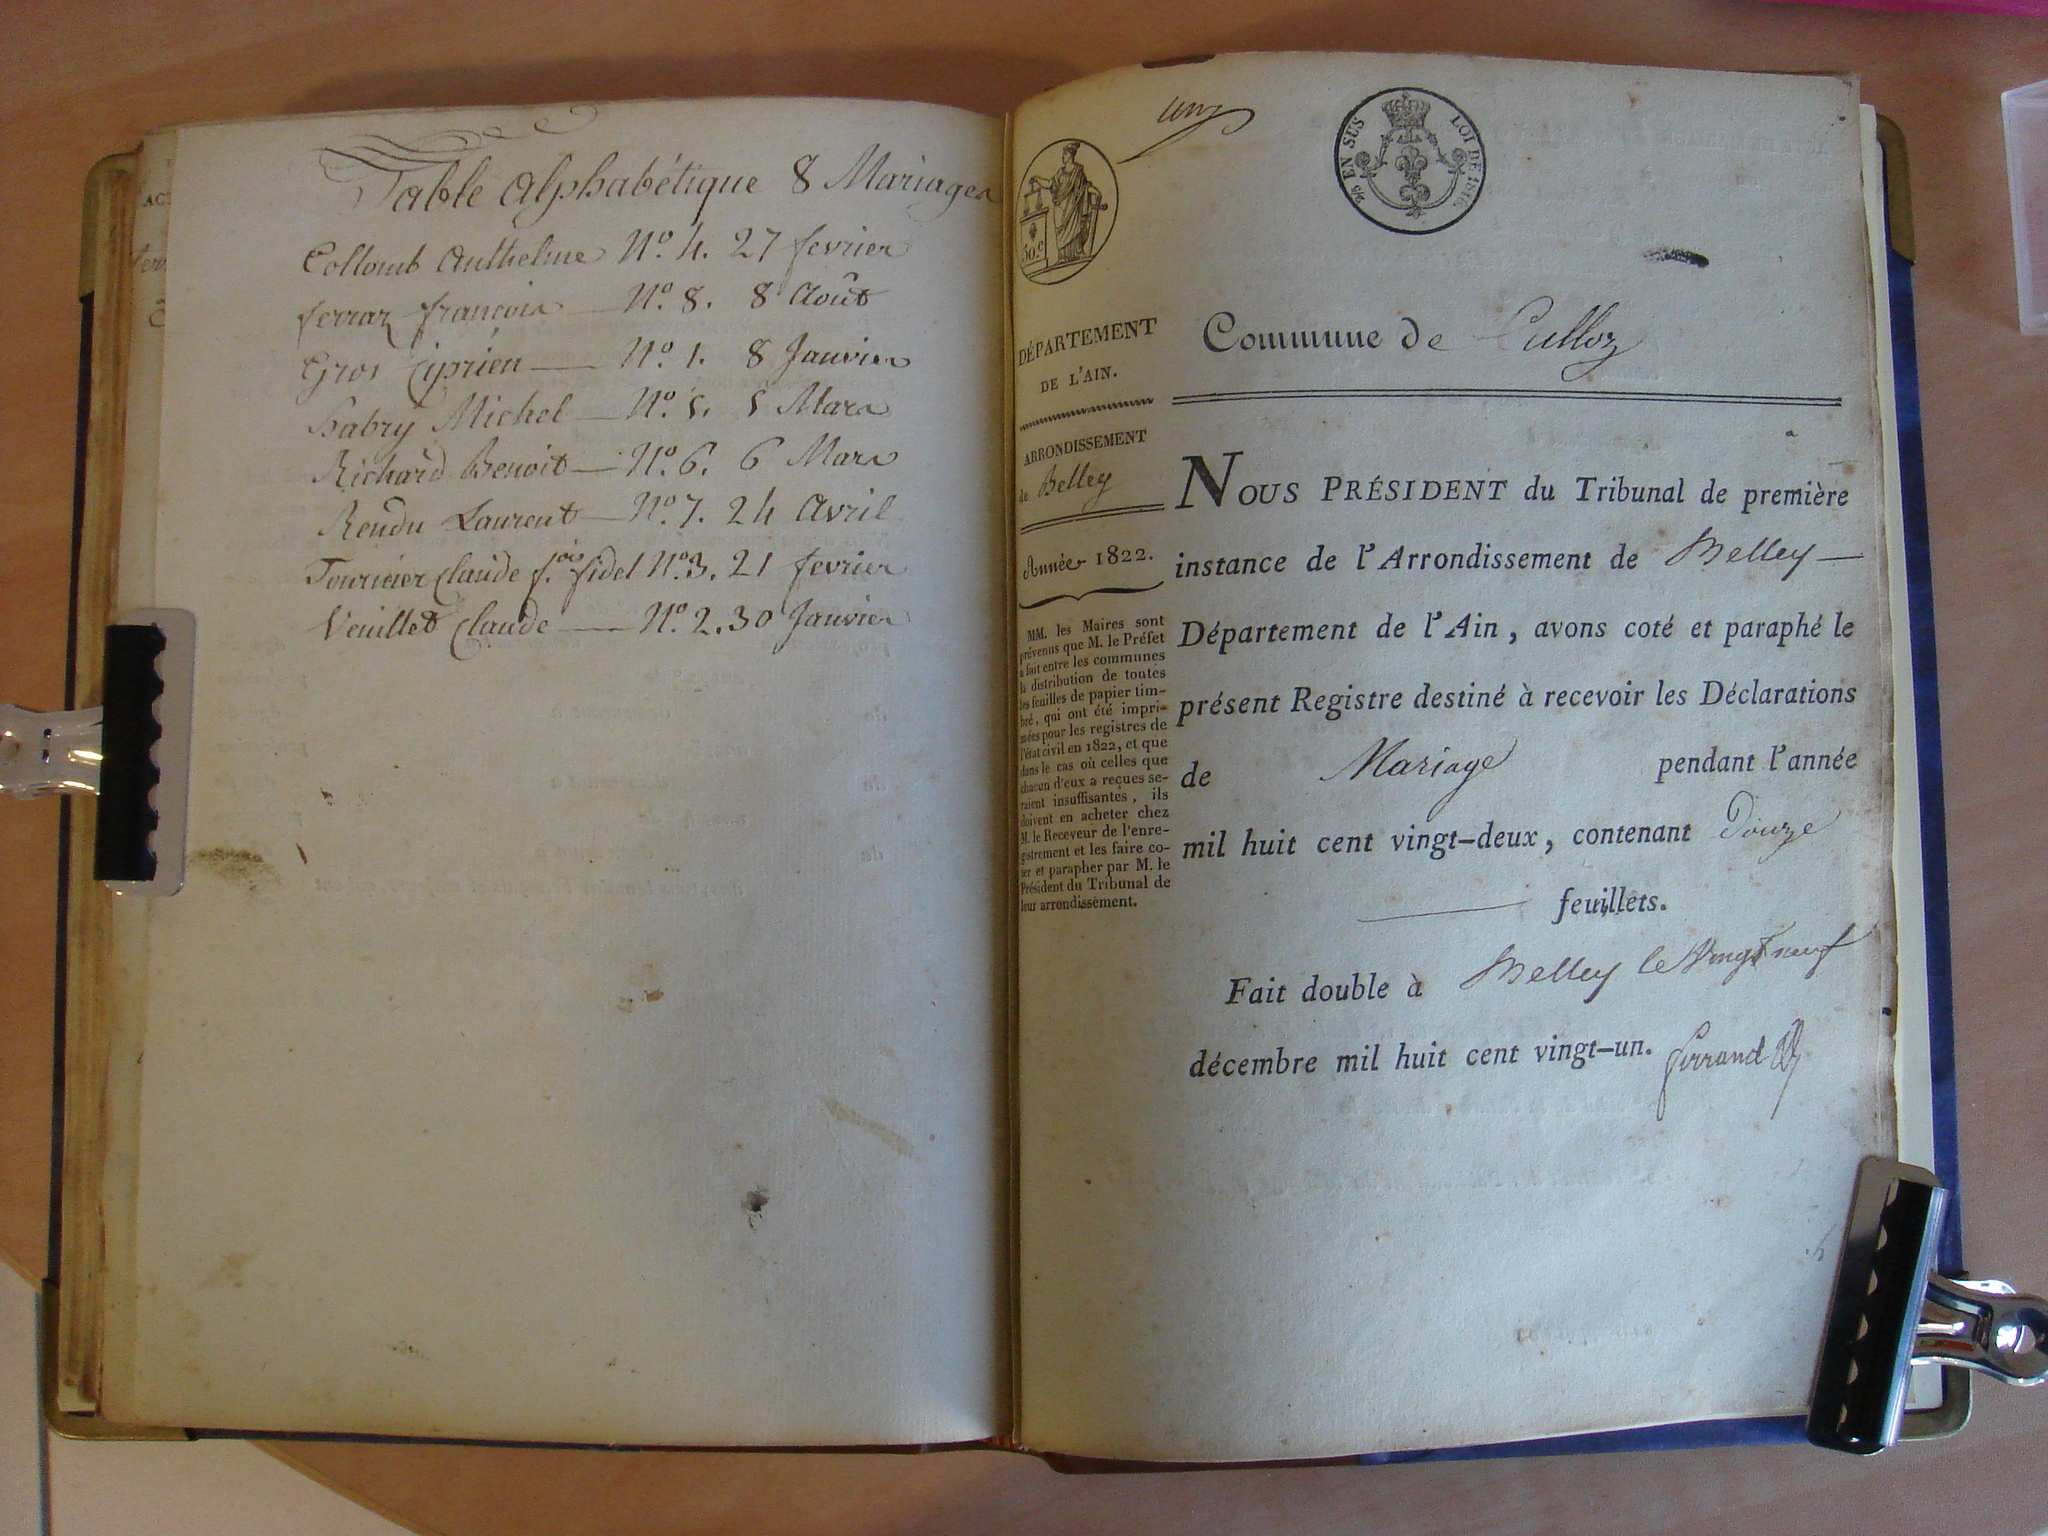 Table Alphabétique 8 Mariages
Collomb Anthelme N.o 4. 27 fevrier
ferraz françois N.o 8. 8 Août
Gros Ciprien N.o 1. 8 Janvier
Habry Michel N.o 5. 5 Mars
Richard Benoit N.o 6. 6 Mars
Rendu Laurent N.o 7. 24 Avril
Tournier Claude f.ois fidel N.o 3. 21 fevrier
Veuillet Claude N.o 2. 30 Janvier
AC
un
50.c
EN SUS LOI DE 1816.
DÉPARTEMENT
DE L'AIN.
ARRONDISSEMENT
de Belley
Année 1822.
MM. les Maires sont
prévenus que M. le Préfet
a fait entre les communes
la distribution de toutes
les feuilles de papier tim-
bré, qui ont été impri-
mées pour les registres de
l'état civil en 1822, et que
dans le cas où celles que
chacun d'eux a reçues se-
raient insuffisantes, ils
doivent en acheter chez
M. le Receveur de l'enre-
gistrement et les faire co-
ter et parapher par M. le
Président du Tribunal de
leur arrondissement.
Commune de Culloz
NOUS PRÉSIDENT du Tribunal de première
instance de l'Arrondissement de Belley
Département de l'Ain, avons coté et paraphé le
présent Registre destiné à recevoir les Déclarations
de Mariage pendant l'année
mil huit cent vingt-deux, contenant Douze
feuillets.
Fait double à Belley le vingt neuf
décembre mil huit cent vingt-un. ferrand